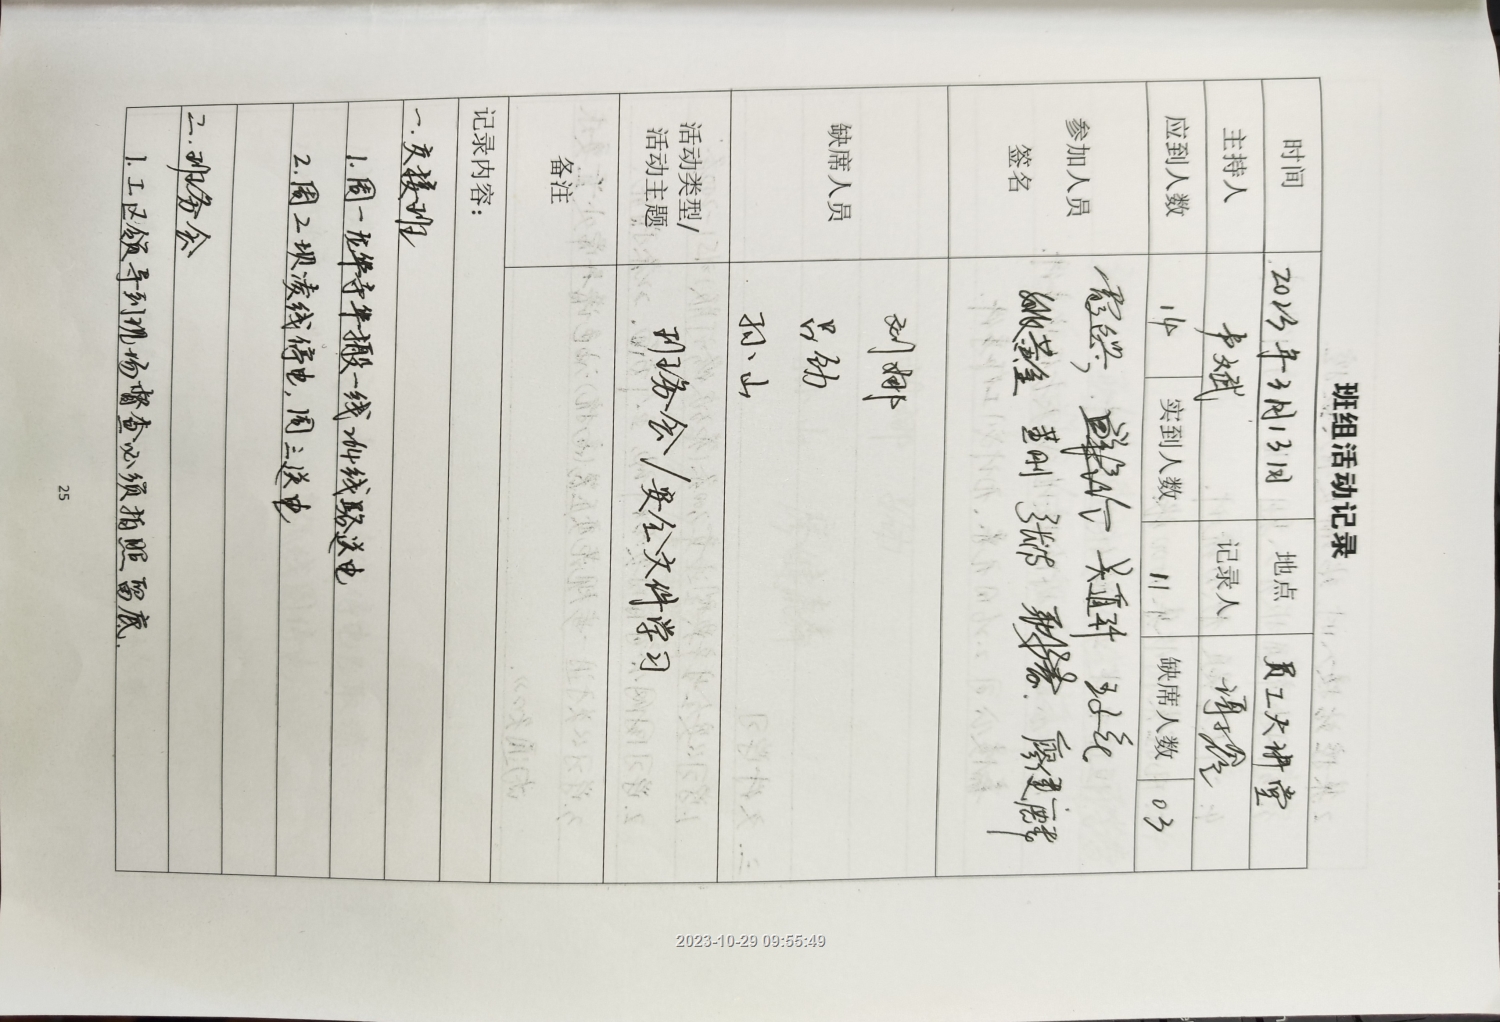 班组活动记录
时间 2023年3月13日 地点 员工大讲堂
主持人 记录人
应到人数 14 实到人数 11 缺席人数 03
参加人员
签名
黄刚 廖建
缺席人员
刘娜
吕劲
孙山
活动类型/
活动主题
班务会/安全文件学习
备注
记录内容:
一.交接班
1.周一 线路送电
2.周二坝凌线停电,周三送电
二.班务会
1.工区领导到现场督查必须拍照留底.
25
2023-10-29 09:55:49